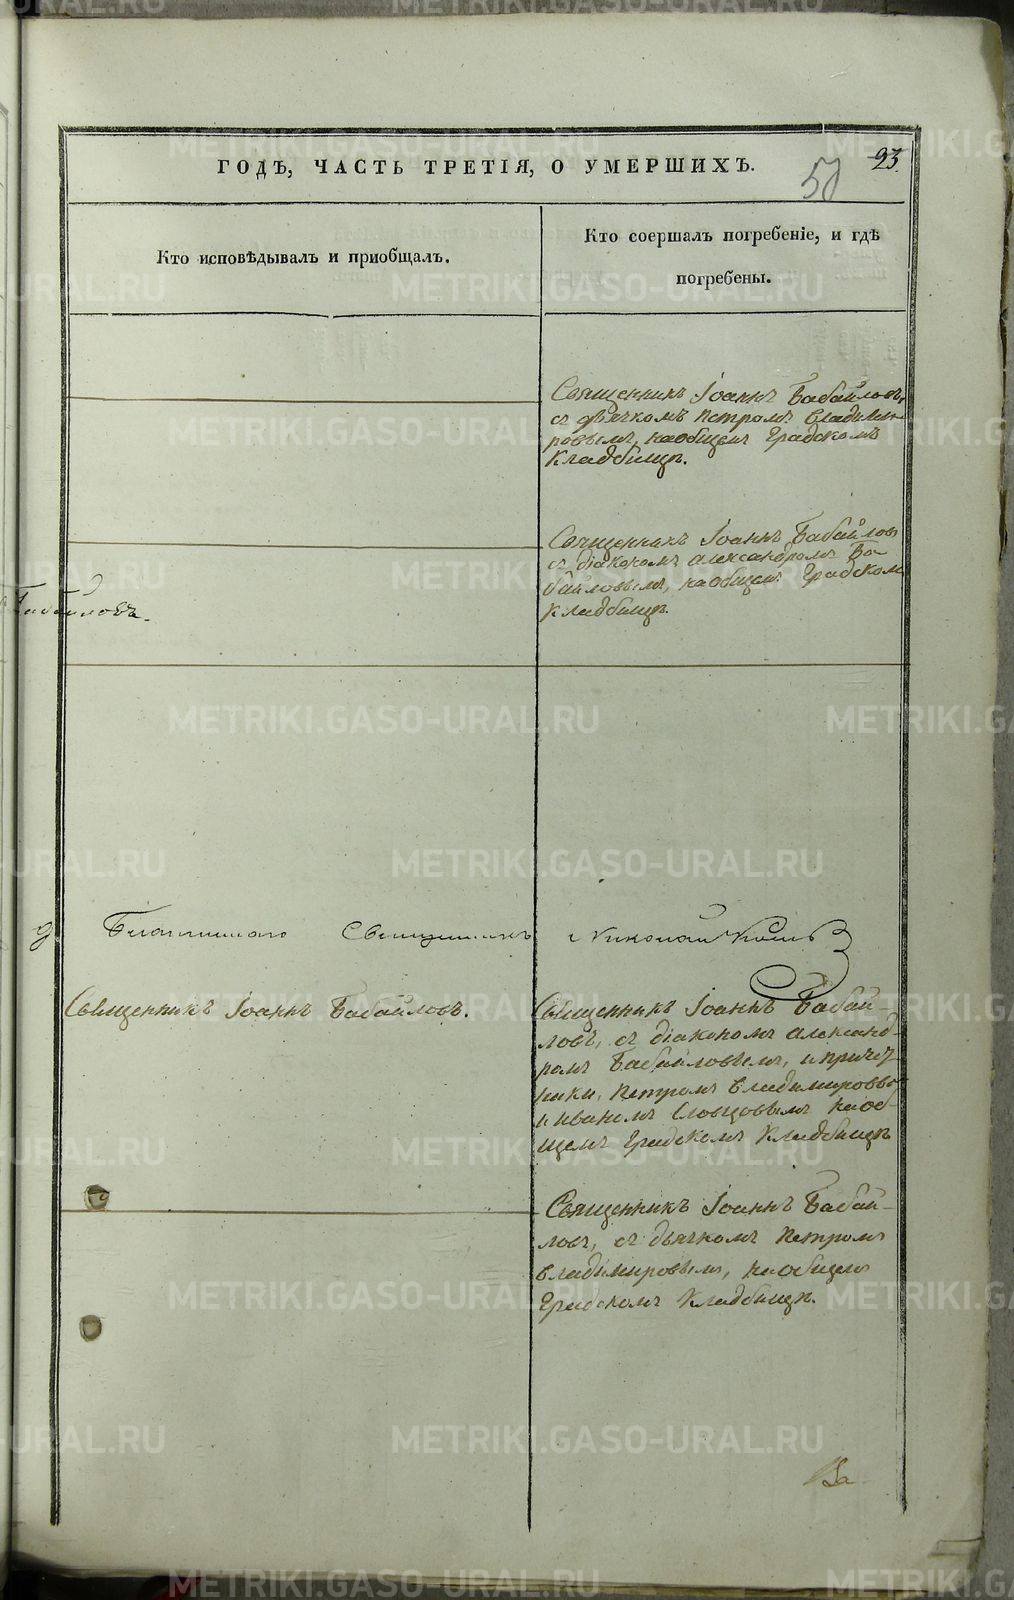 ГОДЪ, ЧАСТЬ ТРЕТІЯ, О УМЕРШИХЪ.
50
93.
Кто исповѣдывалъ и пріобщалъ.
Кто соершалъ погребеніе, и гдѣ
погребены.
Священникъ Іоаннъ Бабайловъ,
съ дьячкомъ Петромъ Владими-
ровымъ, на общемъ Градскомъ
Кладбищѣ.
Священникъ Іоаннъ Бабайловъ
съ діакономъ Александромъ Ба-
байловымъ, на общемъ Градском
Кладбищѣ.
Бабайловъ.
Священникъ Николай
Священникъ Іоаннъ Бабайловъ.
Священникъ Іоаннъ Бабай-
ловъ, съ діакономъ Александ-
ромъ Бабайловымъ, и причет-
ники, Петромъ Владимировым
и Иваномъ Словцовымъ на об-
щемъ Градскомъ Кладбищѣ
Священникъ Іоаннъ Бабай-
ловъ, съ дьячкомъ Петромъ
Владимировымъ, на общемъ
Градскомъ Кладбищѣ.
METRIKI.GASO-URAL.RU